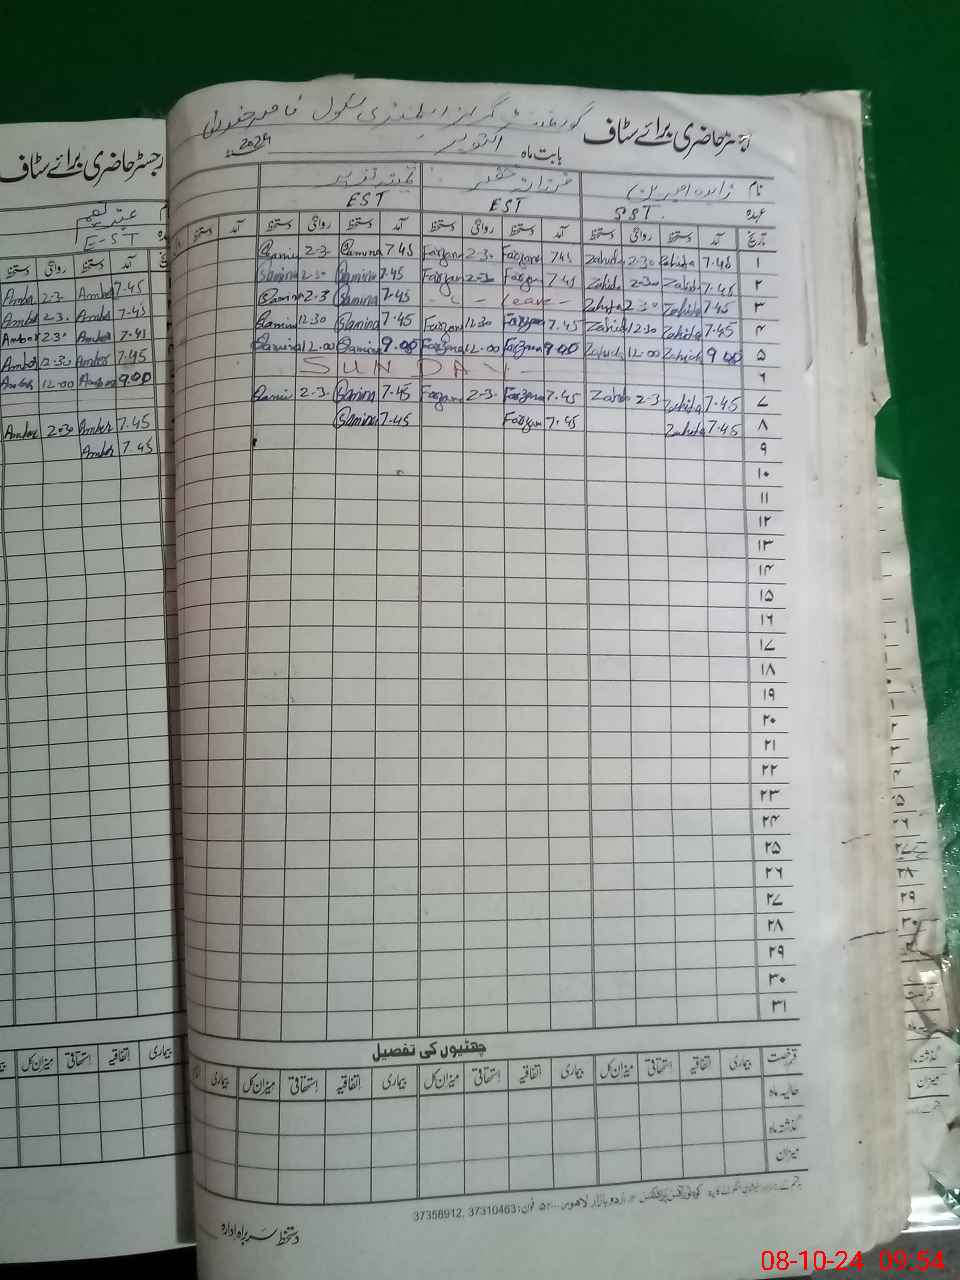 رجسٹر حاضری برائے سٹاف گورنمنٹ گرلز ایلیمنٹری سکول
بابت ماہ اکتوبر 2024
نام زاہدہ فرزانہ ثمینہ
عہدہ PST. EST EST
تاریخ آمد دستخط روانگی دستخط آمد دستخط روانگی دستخط آمد دستخط روانگی دستخط آمد دستخط
۱ 7.45 Zahida 2.30 Zahida 7.45 Farzana 2.30 Farzana 7.45 Samina 2.3 Samina
۲ 7.45 Zahida 2.30 Zahida 7.45 Farzan 2.30 Farzan 7.45 Samina 2.30 Samina
۳ 7.45 Zahida 2.30 Zahida - Leave - 7.45 Samina 2.3 Samina
۴ 7.45 Zahida 12.30 Zahida 7.45 Farzan 12.30 Farzan 7.45 Samina 12.30 Samina
۵ 9.00 Zahida 12.00 Zahida 9.00 Farzana 12.00 Farzana 9.00 Samina 12.00 Samina
۶ SUNDAY
۷ 7.45 Zahida 2.3 Zahida 7.45 Farzana 2.3 Farzana 7.45 Samina 2.3 Samina
۸ 7.45 Zahida 7.45 Farzan 7.45 Samina
۹
۱۰
۱۱
۱۲
۱۳
۱۴
۱۵
۱۶
۱۷
۱۸
۱۹
۲۰
۲۱
۲۲
۲۳
۲۴
۲۵
۲۶
۲۷
۲۸
۲۹
۳۰
۳۱
چھٹیوں کی تفصیل
قسم رخصت بیماری اتفاقیہ استحقاقی میزان کل بیماری اتفاقیہ استحقاقی میزان کل بیماری اتفاقیہ استحقاقی میزان کل بیماری
حالیہ ماہ
گذشتہ ماہ
میزان
اردو بازار لاہور فون: 37310463, 37356912
دستخط سربراہ ادارہ
رجسٹر حاضری برائے سٹاف
E-ST
آمد دستخط روانگی دستخط
7.45 Amber 2.3. Amber
7.45 Amber 2.3. Amber
7.45 Amber 2.30 Amber
7.45 Amber 12.30 Amber
9.00 Amber 12.00 Amber
7.45 Amber 2.30 Amber
7.45 Amber
بیماری اتفاقیہ استحقاقی میزان کل
08-10-24 09:54